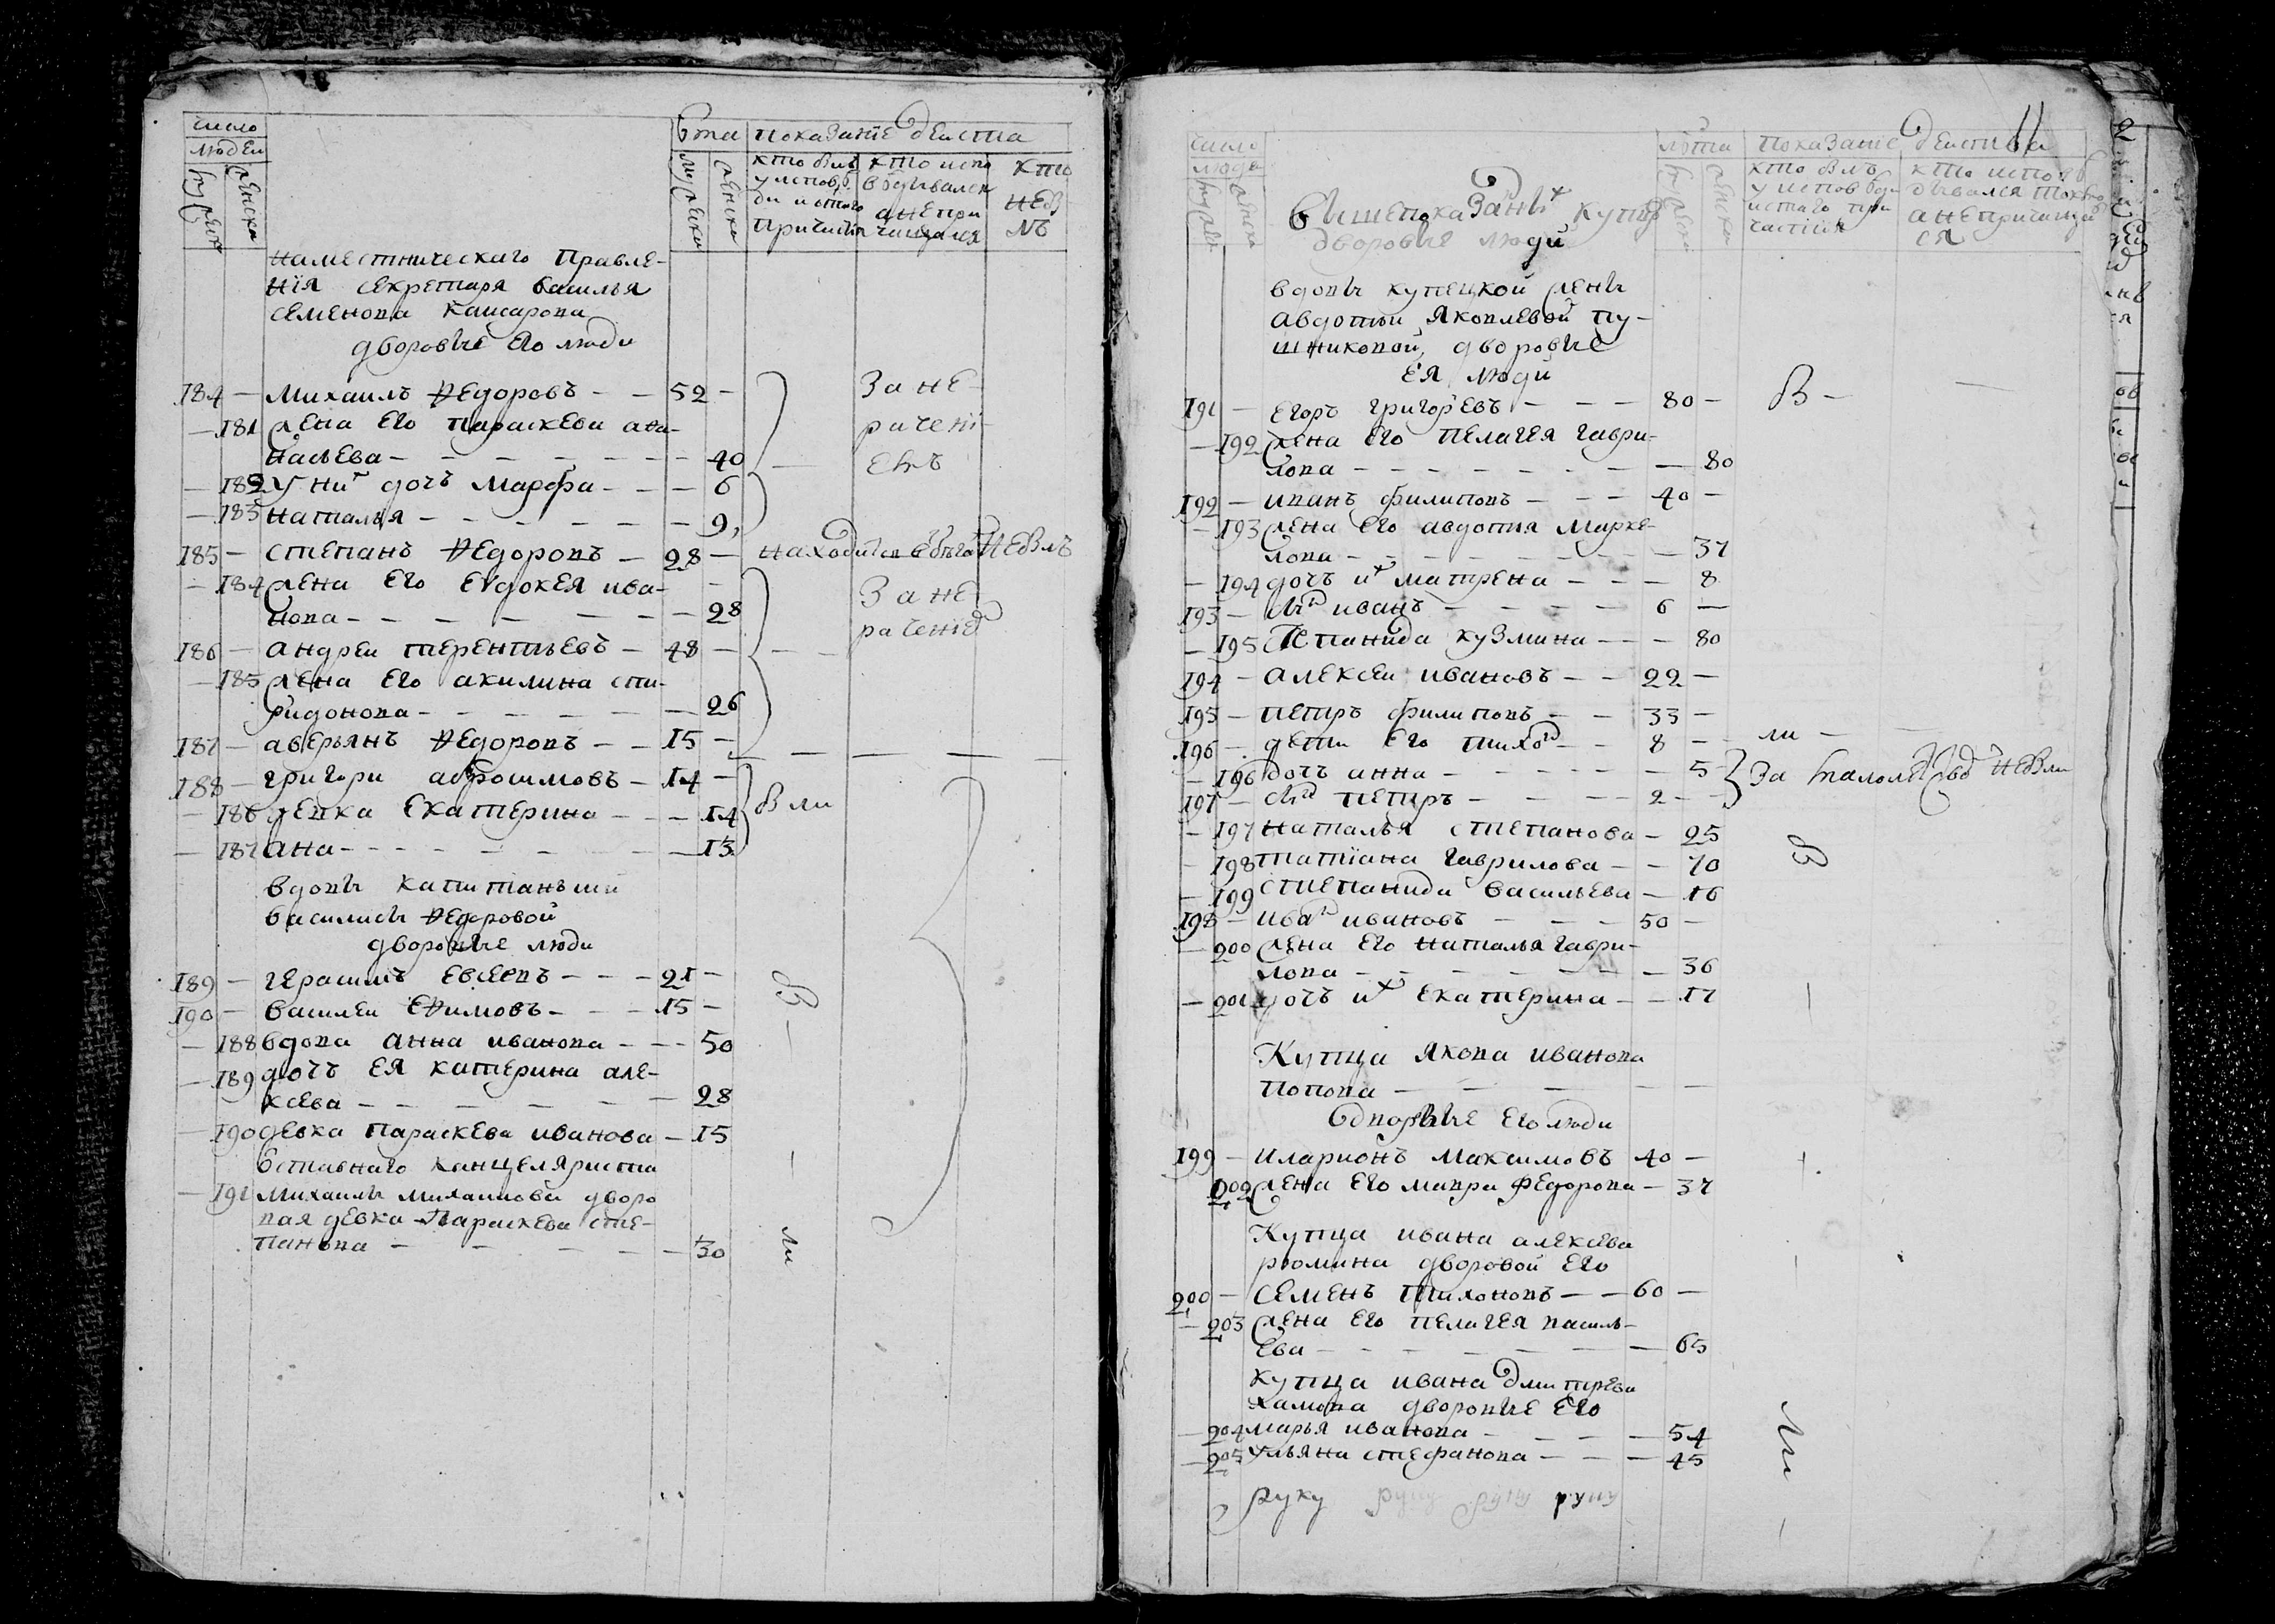 число
людей
Лѣта
показанїе действа
мужеска
женска
мужеска
женска
кто былъ
у исповѣ
ди и свято
причастія
кто испо
вѣдывался
а не при
чащался
кто
не бы
лъ
наместническаго правле-
нїя секретаря василья
семенова каисарова
дворовые его люди
184 — михаилъ Ѳедоровъ — — 52 —
— 181 жена его параскева афа-
насьева — — — — — — 40
— 182 у них дочь марфа — — — 6
— 183 наталья — — — — — — 9
за не-
рачені-
емъ
185 — степанъ Ѳедоровъ — 28 — находится в бегах не былъ
— 184 жена его евдокея ива-
нова — — — — — — 28
186 — андреи терентьевъ — 48 —
— 185 жена его акилина спи-
ридонова — — — — — — 26
187 — аверьянъ Ѳедоровъ — — 15 —
за не
раченіе
188 — григори аброшимовъ — 14 —
— 186 девка екатерина — — — 14
— 187 ана — — — — — — 13
были
вдовы капитаньши
василисы Ѳедоровой
дворовые люди
189 — герасимъ евсеевъ — — — 21 —
190 — василеи еѲимовъ — — — 15 —
— 188 вдова анна иванова — — — 50
— 189 дочь ея катерина але-
ксева — — — — — — 28
— 190 девка параскева иванова — 15
отставнаго канцеляриста
— 191 михаилы михаилова дворо
вая девка параскева сте-
панова — — — — — 30
бы
ли
11
число
люде
мужеск
женска
лѣта
мужеска
женска
показаніе действа
кто былъ
у исповѣди
и святаго при
частія
кто исповѣ
дывался токмо
а не причащал
ся
Вышепоказанных купцо
дворовые люди
вдовы купецкой жены
авдотьи яковлевой пу-
шниковой, дворовые
ея люди
191 — егоръ григорьевъ — — — 80 — бы —
— 192 жена его пелагея гаври-
лова — — — — — — — 80
192 — иванъ филиповъ — — — 40 —
— 193 жена его авдотья марке-
лова — — — — — — — 37
— 194 дочь их матрена — — — 8
193 — сынъ иванъ — — — — 6 —
— 195 степанида кузмина — — — 80
194 — алексеи ивановъ — — 22 —
195 — петръ филиповъ — — 33 —
196 — дети его тихонъ — — 8 — ли —
— 196 дочь анна — — — — — 5
197 — сынъ петръ — — — — 2 —
за малолетство не были
— 197 наталья степанова — 25
— 198 татїана гаврилова — — 70
— 199 степанида васильева — 16
бы
198 — иванъ ивановъ — — — 50 —
— 200 жена его наталья гаври-
лова — — — — — — — 36
— 201 дочь их екатерина — — 17
Купца якова иванова
попова — — — — —
дворовые его люди
199 — иларионъ максимовъ 40 —
202 жена его мавра федорова — 37
Купца ивана алексева
рюмина дворовой его
200 — семенъ тихоновъ — — 60 —
— 203 жена его пелагея василь-
ева — — — — — — 65
купца ивана дмитрева
хамова дворовые его
— 204 марья иванова — — — — 54
— 205 ульяна стефанова — — — 45
ли
руку руку руку руку